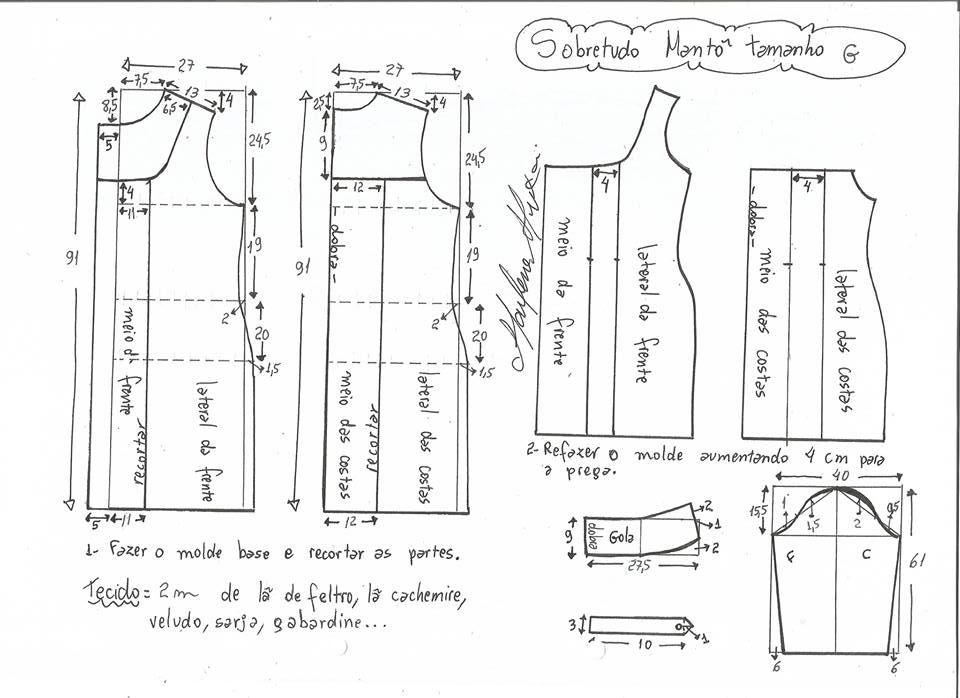 Sobretudo Mantô tamanho G
27
7,5
13
8,5
6,5
4
5
24,5
4
11
91
19
2
20
1,5
meio da frente
recortar
lateral da frente
5
11
27
7,5
13
2,5
4
9
24,5
12
- dobra -
91
19
2
20
1,5
meio das costas
recortar
lateral das costas
12
4
meio da frente
lateral da frente
4
- dobra -
meio das costas
lateral das costas
1- Fazer o molde base e recortar as partes.
Tecido = 2m de lã de feltro, lã cachemire,
veludo, sarja, gabardine...
2- Refazer o molde aumentando 4 cm para
a prega.
9
dobra
Gola
2
1
2
27,5
3
10
1
40
15,5
1
1,5
2
0,5
F
C
61
6
6